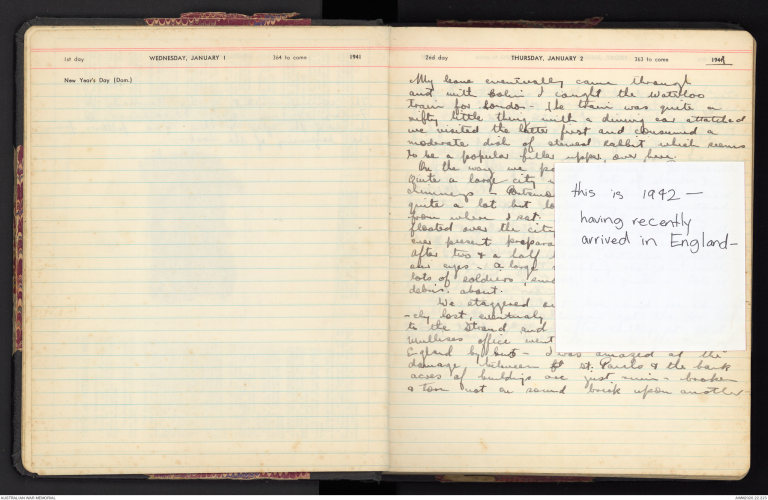 1st day WEDNESDAY, JANUARY 1 364 to come 1941
New Year's Day (Dom.)
2nd day THURSDAY, JANUARY 2 363 to come 1942
My leave eventually came through
and with Colin I caught the Waterloo
train for London - The train was quite a
nifty little thing with a dining car attatched
we visited the latter first and consumed a
moderate dish of stewed rabbit which seems
to be a popular filler upper, over here.
On the way we pa
quite a large city
chimneys -
quite a lot but
from where I sat
floated over the city
ever present
after two & a half
our eyes - a large
lots of soldiers,
debris about.
We staggered
-ely lost, eventualy
to the Strand and
office went
England by - I was amazed at the
damage between St. Pauls & the bank
acres of buildings are just ruins - broken
& torn not on sound brick upon another
this is 1942 —
having recently
arrived in England -
AUSTRALIAN WAR MEMORIAL